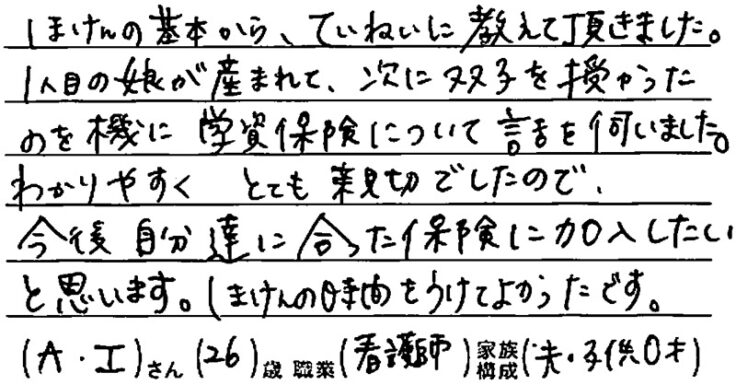 ほけんの基本から、ていねいに教えて頂きました。
1人目の娘が産まれて、次に双子を授かった
のを機に学資保険について話を伺いました。
わかりやすく とても親切でしたので、
今後自分達に合った保険に加入したい
と思います。ほけんの時間をうけてよかったです。
(A・I)さん (26)歳 職業(看護師)家族構成(夫・子供0才)